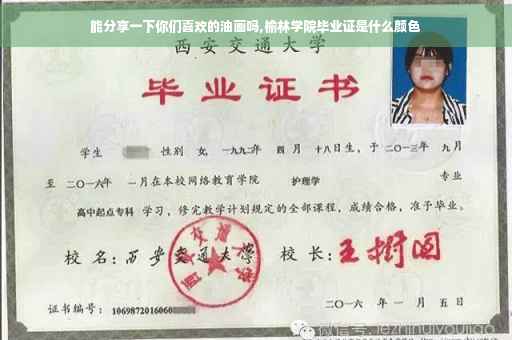 能分享一下你们喜欢的油画吗,榆林学院毕业证是什么颜色
西安交通大学
毕业证书
学生 性别 女, 一九九二年 四月 十八日生, 于二〇一三年 九月
至 二〇一六年 一月在本校网络教育学院 护理学 专业
高中起点专科 学习, 修完教学计划规定的全部课程, 成绩合格, 准予毕业。
校 名: 西安交通大学 校 长: 王树国
西安交通大学
证书编号: 1069872016060
二〇一六 年 一 月 五 日
微信号: jezhihuiyoujiao